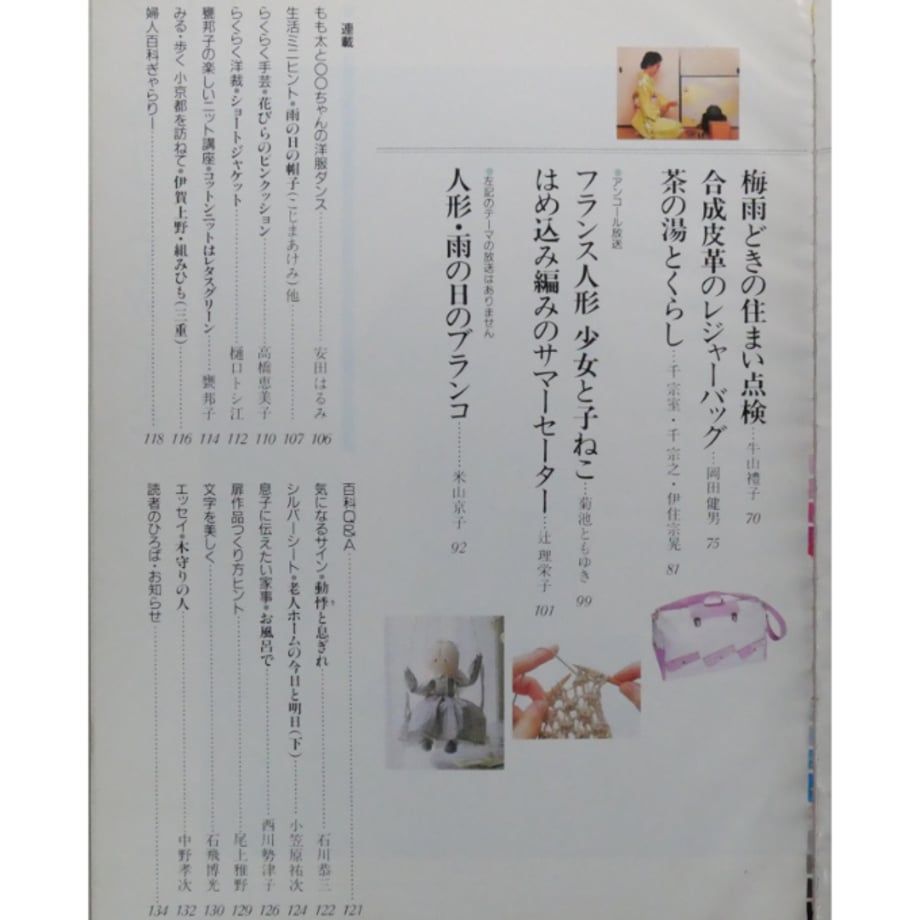 梅雨どきの住まい点検…牛山禮子 70
合成皮革のレジャーバッグ…岡田健男 75
茶の湯とくらし…千 宗室・千 宗之・伊住宗晃 81
●アンコール放送
フランス人形 少女と子ねこ…菊池ともゆき 99
はめ込み編みのサマーセーター…辻 理栄子 101
●左記のテーマの放送はありません
人形・雨の日のブランコ………米山京子 92
連載
もも太と〇〇ちゃんの洋服ダンス………安田はるみ 106
生活ミニヒント●雨の日の帽子(こじまあけみ)他………107
らくらく手芸●花びらのピンクッション………高橋恵美子 110
らくらく洋裁●ショートジャケット………樋口トシ江 112
甕邦子の楽しいニット講座●コットンニットはレタスグリーン………甕邦子 114
みる・歩く 小京都を訪ねて●伊賀上野・組みひも(三重)………116
婦人百科ぎゃらりー………118
百科Q&A………121
気になるサイン●動悸と息ぎれ………石川恭三 122
シルバーシート●老人ホームの今日と明日(下)………小笠原祐次 124
息子に伝えたい家事●お風呂で………西川勢津子 126
扉作品つくり方ヒント………尾上雅野 129
文字を美しく………石飛博光 130
エッセイ●木守りの人………中野孝次 132
読者のひろば・お知らせ………134